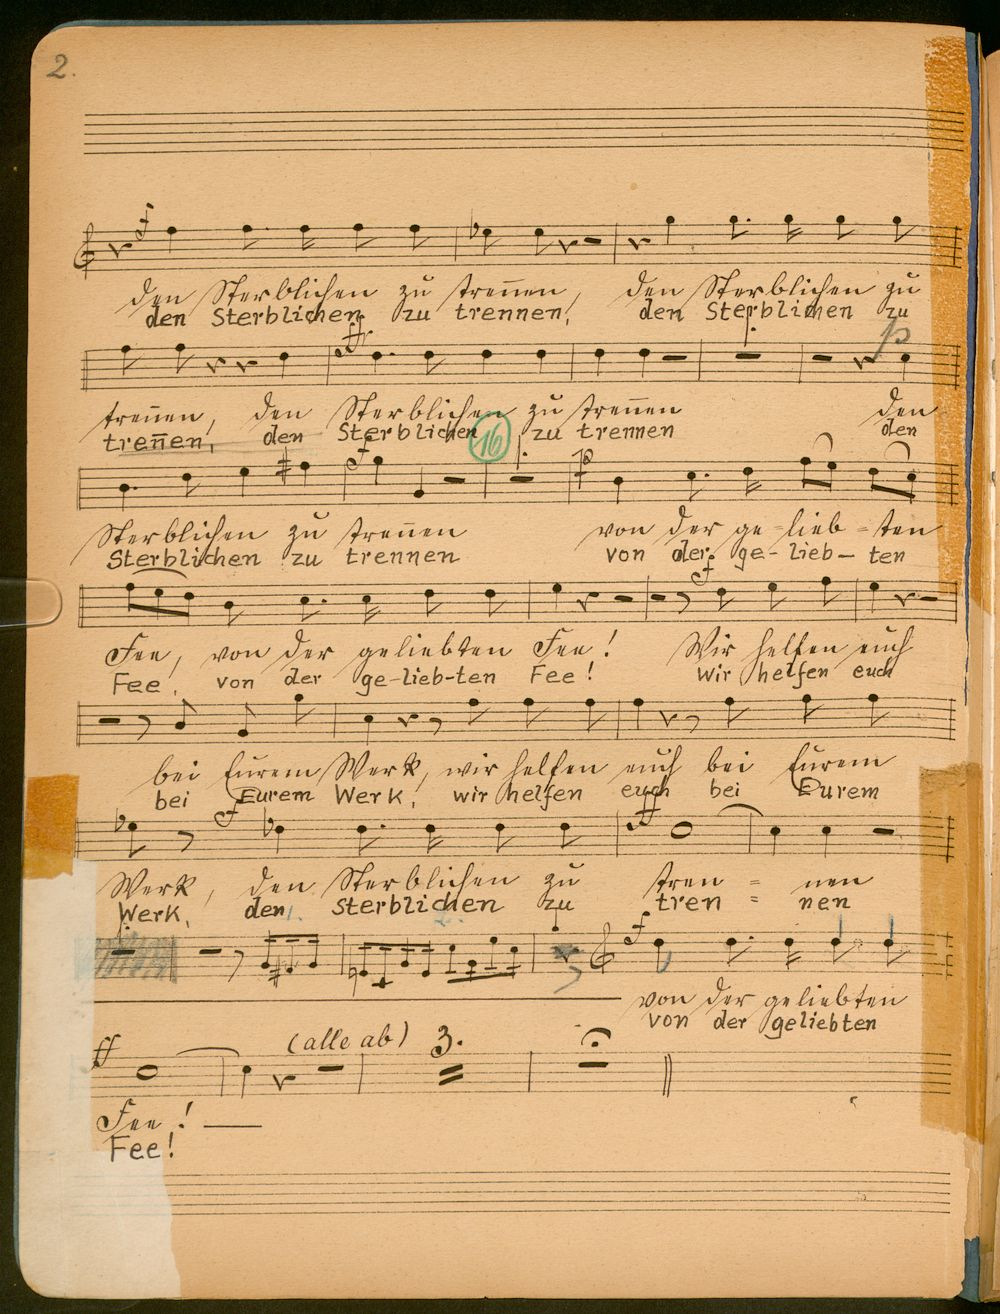 2.
f
den Sterblichen zu treñen, den Sterblichen zu
den Sterblichen zu trennen, den Sterblichen zu
ff p
treñen, den Sterblichen zu treñen den
treñen, den Sterblichen zu trennen den
16
f p
Sterblichen zu treñen von der ge-lieb-ten
Sterblichen zu trennen von der ge-lieb-ten
f
Fee, von der geliebten Fee! Wir helfen euch
Fee, von der ge-lieb-ten Fee! Wir helfen euch
bei Eurem Werk, wir helfen euch bei Eurem
bei Eurem Werk, wir helfen euch bei Eurem
f ff
Werk, den Sterblichen zu tren = nen
Werk, den Sterblichen zu tren = nen
1. 2.
f
von der geliebten
von der geliebten
ff (alle ab) 3.
Fee!
Fee!